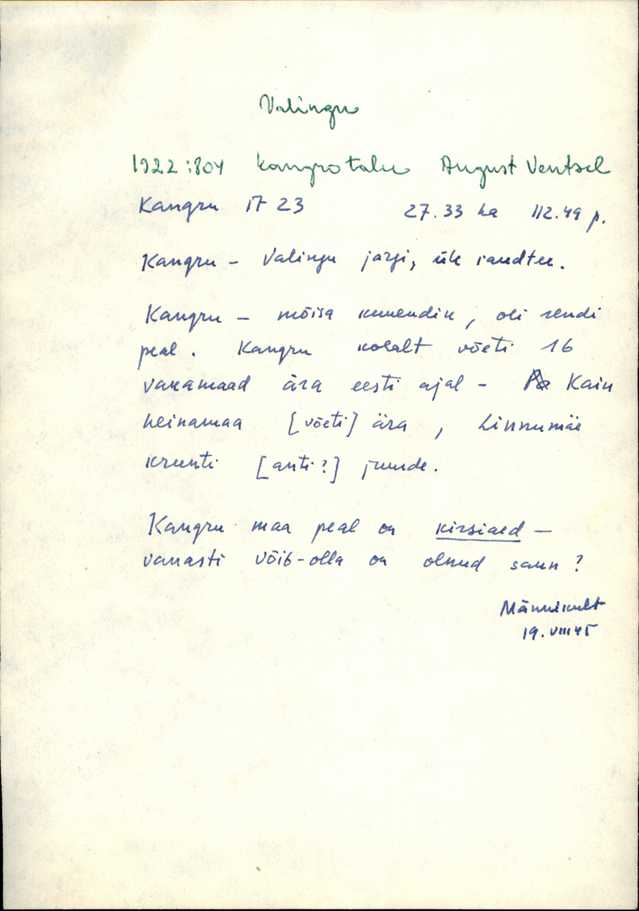 Valingu
1922:804 Kangro talu August Ventsel
Kangru 17 23 27.33 ha 112.49 p.
Kangru – Valingu järgi, üle raudtee.
Kangru – mõisa kuuendik, oli rendi
peal. Kangru kohalt võeti 16
vakamaad ära eesti ajal – Kain
heinamaa [võeti] ära, Linnumäe
krunti [anti?] juurde.
Kangru maa peal on kirsiaed –
vanasti võib-olla on olnud saun?
Männikult
19. VIII 45